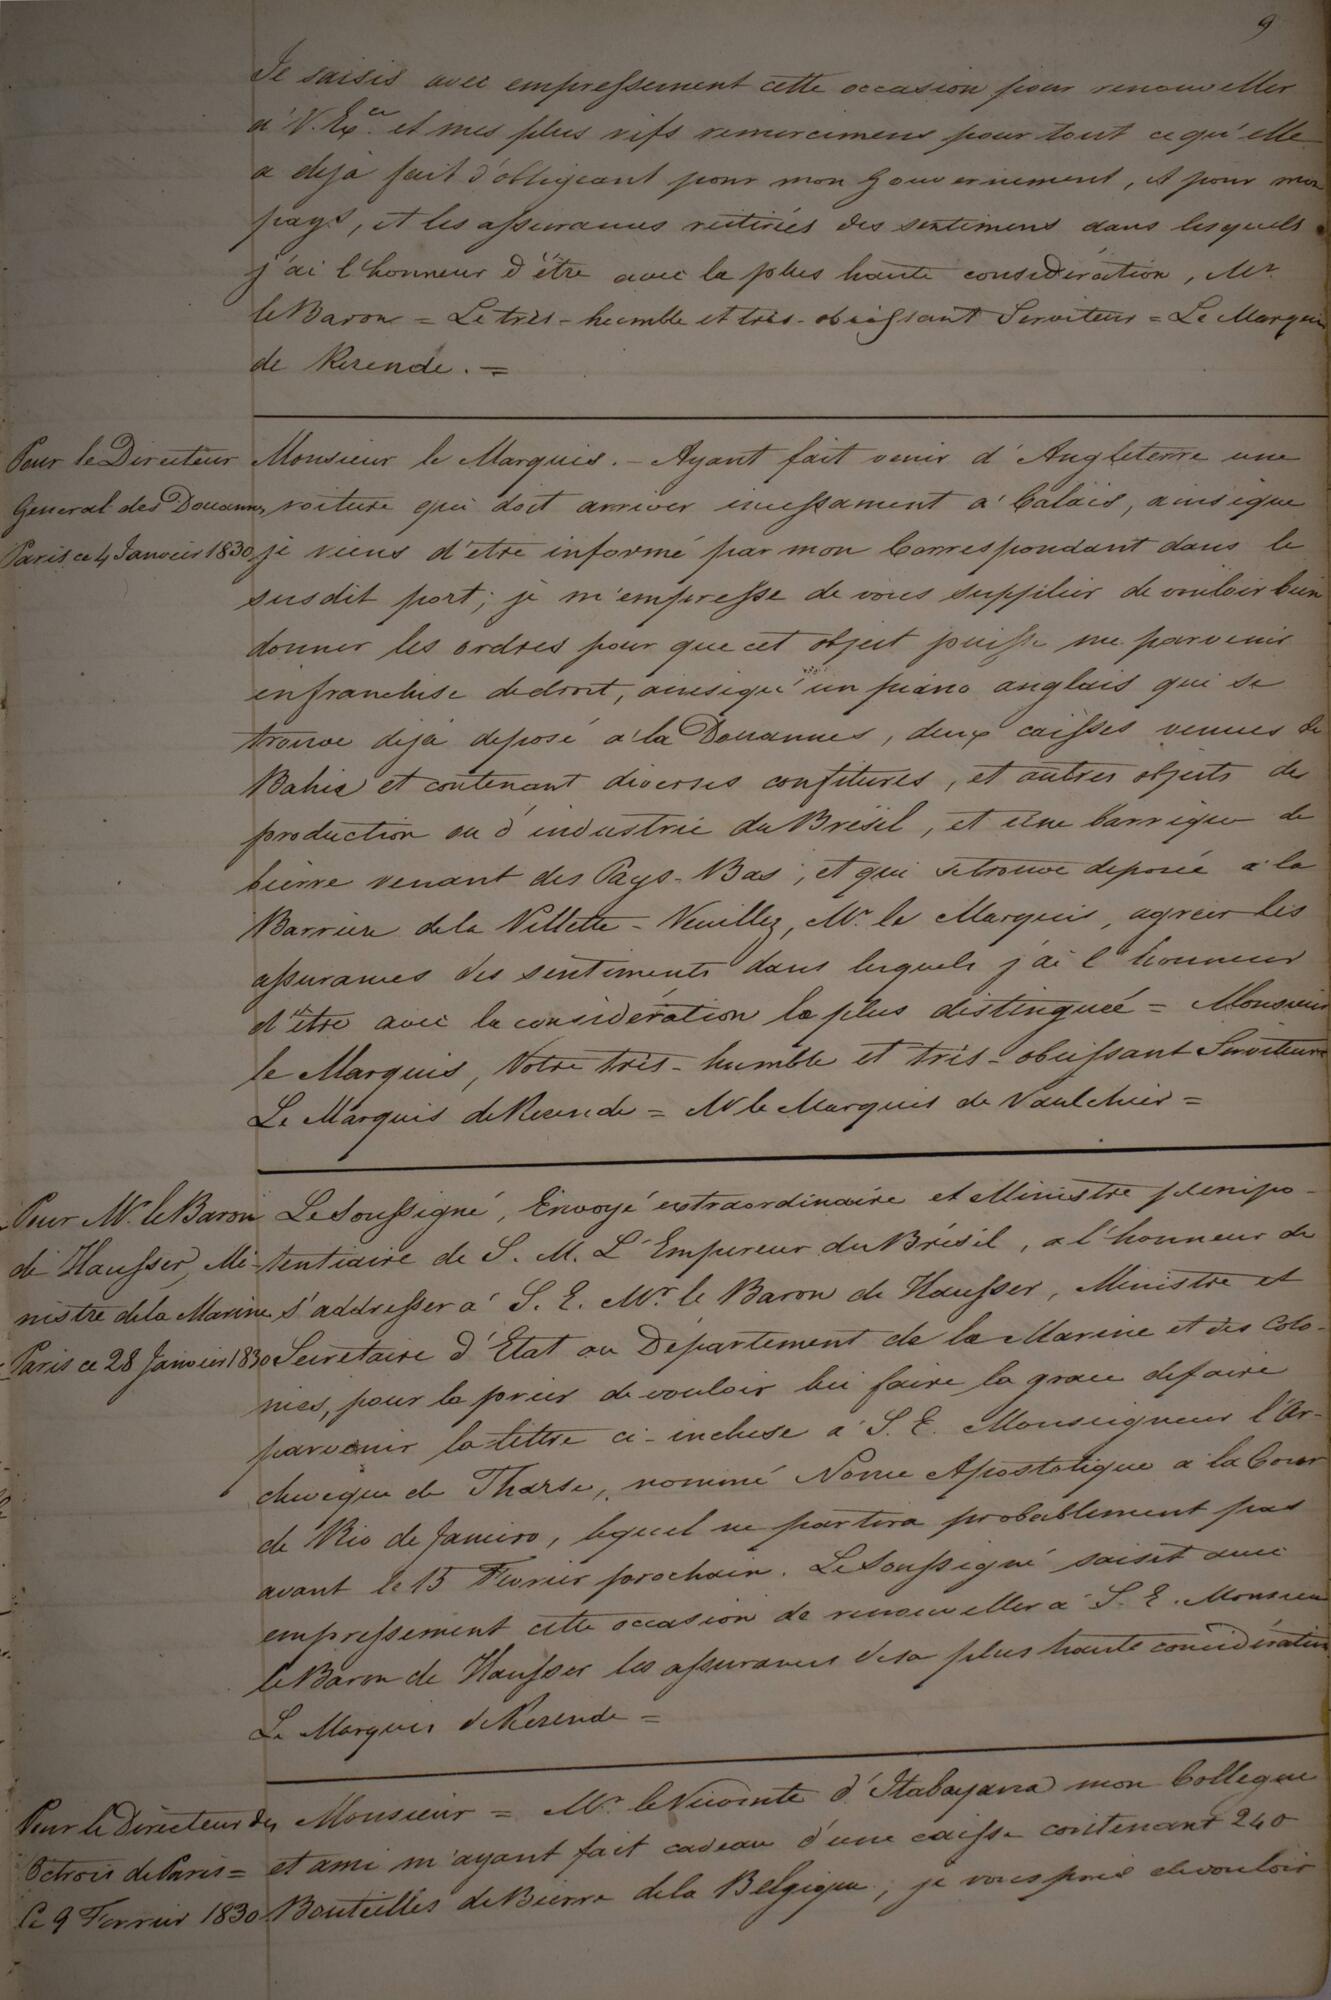 9
Je saisis avec empressement cette occasion pour renouveller
a' V. Ex.ce et mes plus vifs remercimens pour tout ce qu'elle
a déjà fait d'obligeant pour mon Gouvernement, et pour mon
pays, et les assurances reitiriés des sentimens dans lesquels
j'ai l'honneur d'être avec la plus haute considération, Mr.
le Baron = Le très-humble et très-obéissant Serviteur = Le Marquis
de Rezende. =
Pour le Directeur
General des Douannes
Paris ce 4 Janvier 1830
Monsieur le Marquis. - Ayant fait venir d'Angleterre une
voiture qui doit arriver incessament a' Calais, ainsique
je viens d'etre informé par mon Correspondant dans le
susdit port; je m'empresse de vous supplier de vouloir bien
donner les ordres pour que cet objet puisse me parvenir
enfranchise dedroit, ainsiqu'un piano anglais qui se
trouve déjà deposé a' la Douannes, deux caisses venues de
Bahia et contenant diverses confitures, et autres objects de
production ou d'industrie du Brésil, et une barrique de
bierre venant des Pays-Bas; et qui se trouve deposée a' la
Barriere dela Villette - Veuillez, Mr. le Marquis, agreer les
assurances des sentiments dans lesquels j'ai l'honneur
d'être avec la considération la plus distinguée = Monsieur
le Marquis, Votre très-humble et très-obeissant Serviteur
Le Marquis de Rezende = Mr le Marquis de Vaulchier =
Pour Mr. le Baron
de Hausser, Mi-
nistre dela Marine
Paris ce 28 Janvier 1830
Le Soussigné, Envoyé extraordinaire et Ministre plenipo-
tentiaire de S. M. L'Empereur du Brésil, a l'honneur de
s'addresser a' S. E. Mr. le Baron de Hausser, Ministre et
Secretaire d'Etat au Département de la Marine et des Colo-
nies, pour le prier de vouloir lui faire la grace defaire
parvenir la lettre ci-incluse a' S. E. Monseigneur l'Ar-
cheveque de Tharse, nommé Nonce Apostolique a la Cour
de Rio de Janeiro, lequel ne partira probablement pas
avant le 15 Fevrier prochain. Le Soussigné saisit avec
empressement cette occasion de renouveller a' S. E. Monsieur
le Baron de Hausser les assurances desa plus haute considération
Le Marquis de Rezende =
Pour le Directeur des
Octrois de Paris =
Le 9 Fevrier 1830
Monsieur = Mr. le Vicomte d'Itabayana mon Collegue
et ami m'ayant fait cadeau d'une caisse contenant 240
Bouteilles de Bierre dela Belgique, je vous prie de vouloir